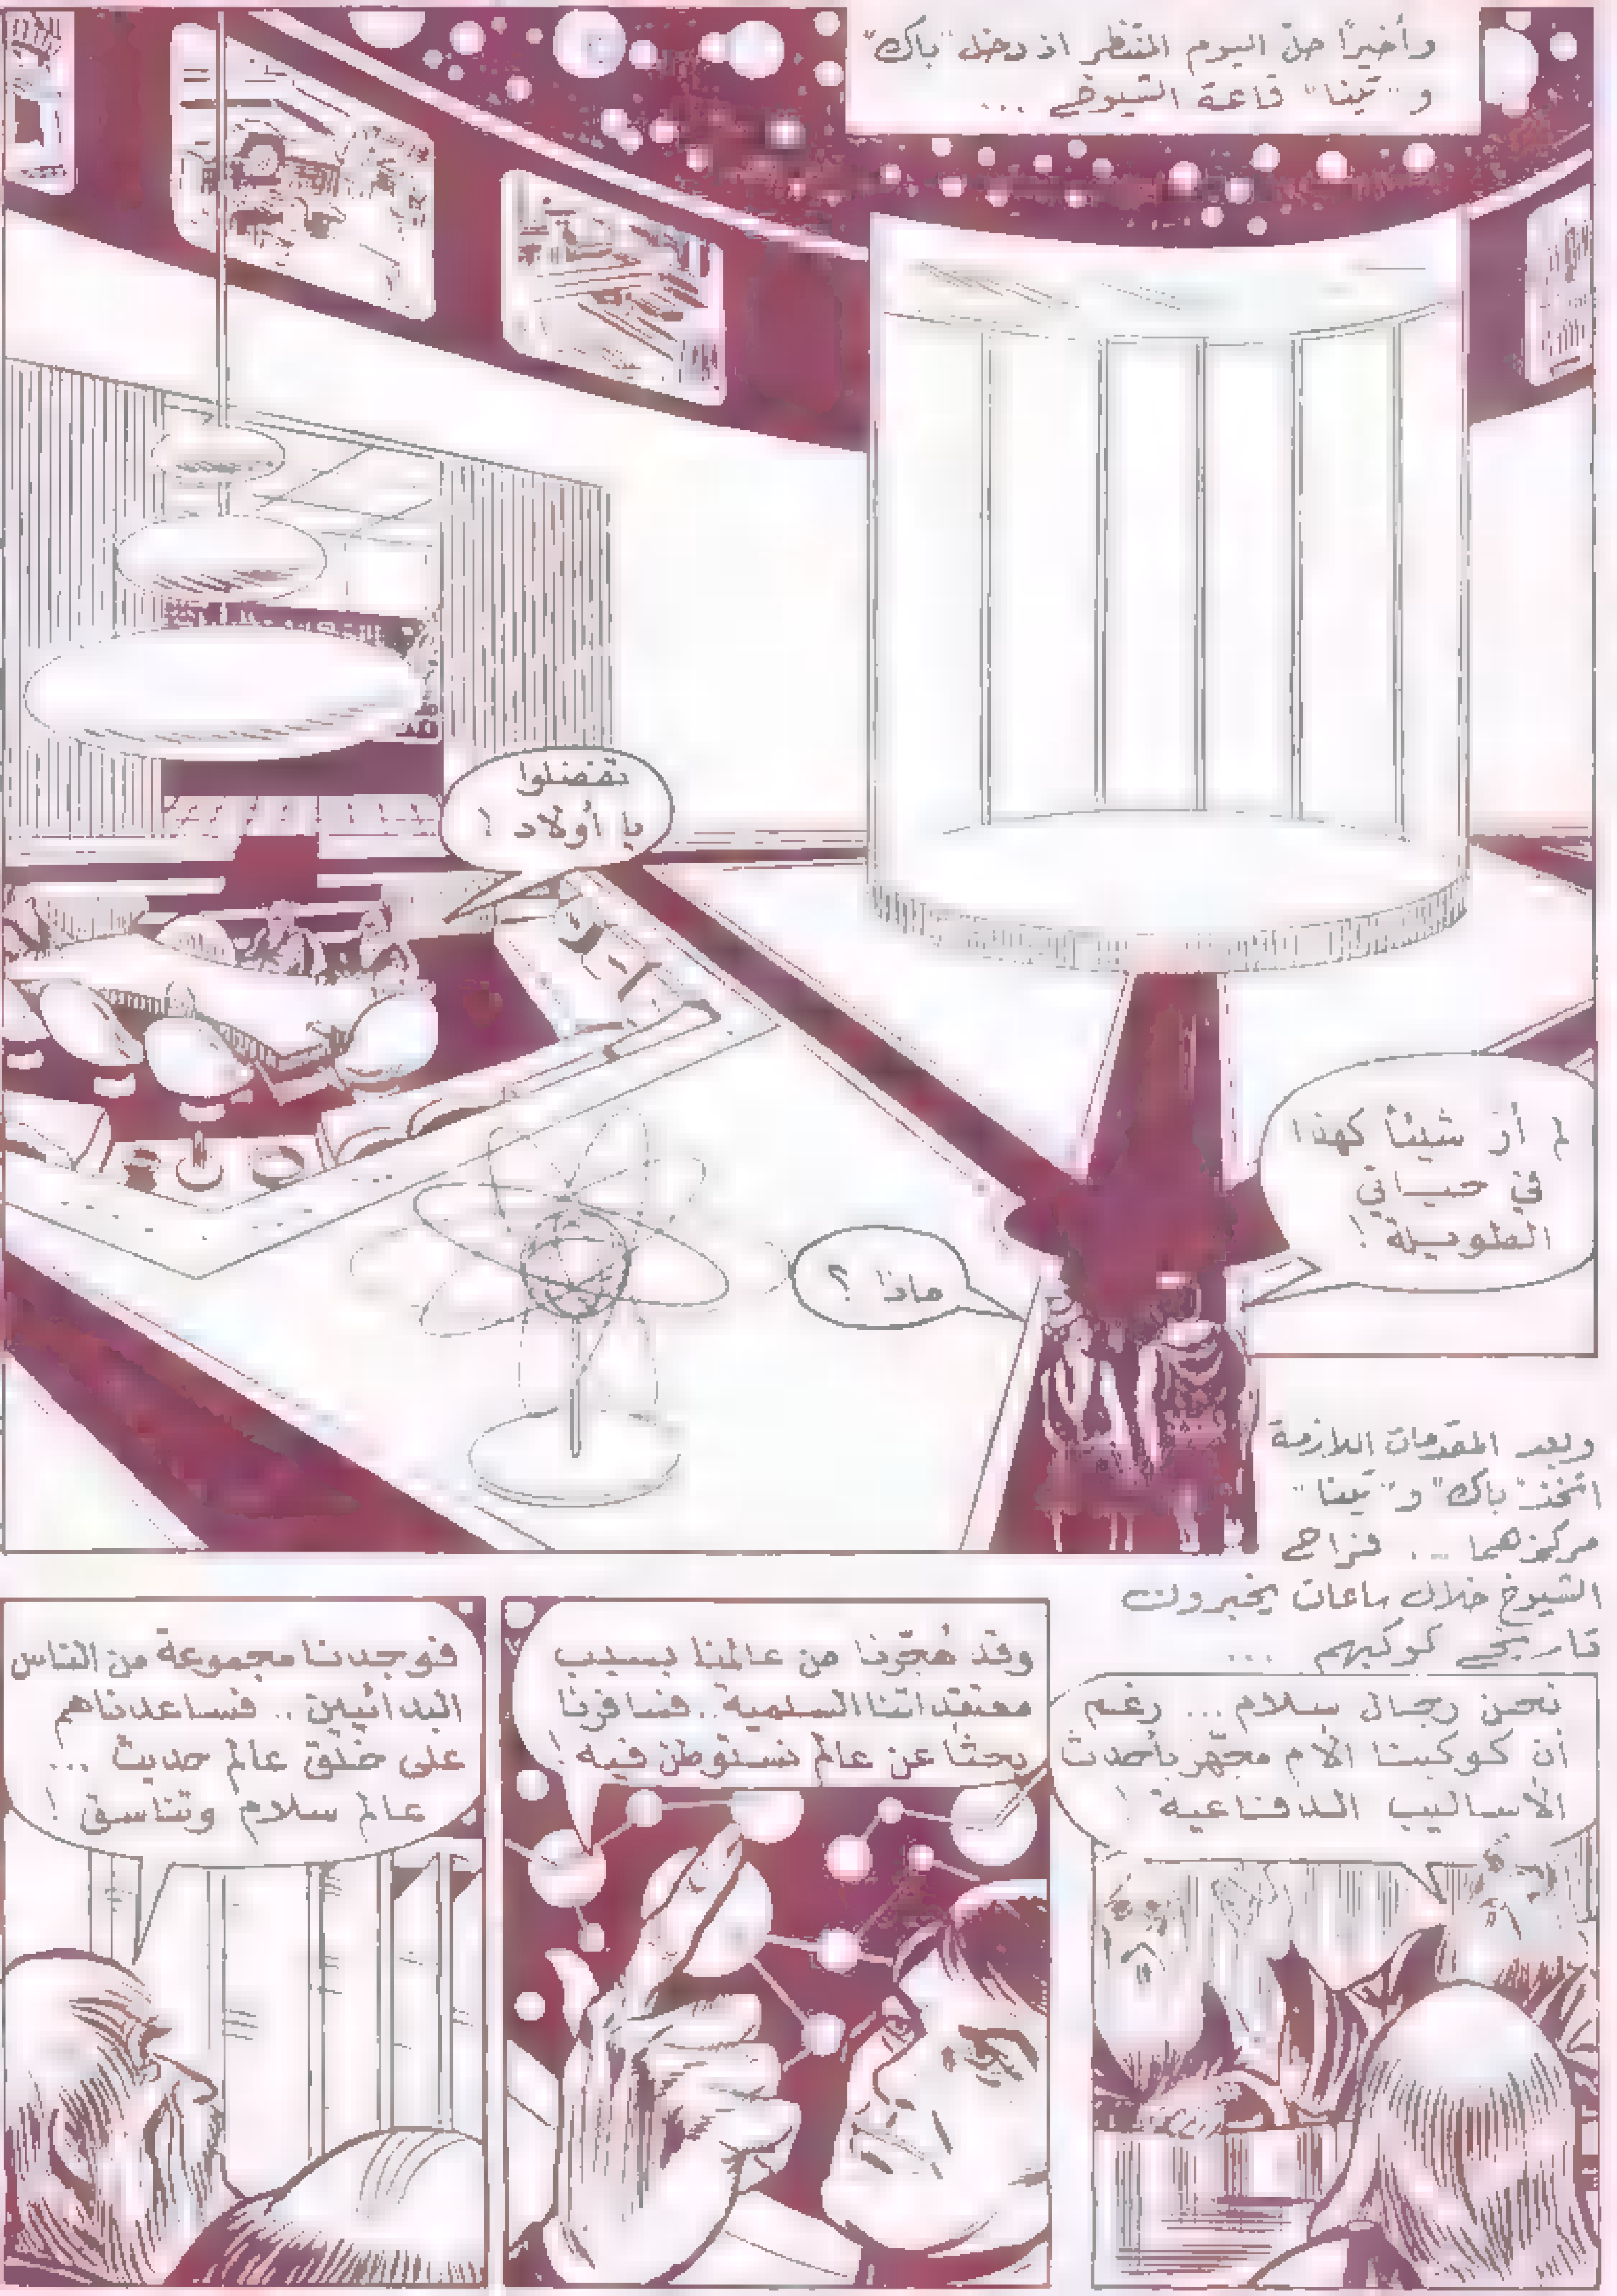 وأخيرًا حلّ اليوم المنتظر اذ دخل "باك"
و "تينا" قاعة الشيوخ ...
تفضلوا
يا أولاد !
لم أرَ شيئًا كهذا
في حياتي
الطويلة !
ماذا ؟
وبعد المقدمات اللازمة
اتخذ "باك" و "تينا"
مركزهما ... فراح
الشيوخ خلال ساعات يخبرون
تاريخ كوكبهم ...
نحن رجال سلام ... رغم
أن كوكبنا الأم مجهّز بأحدث
الأساليب الدفاعية !
وقد هُجّرنا من عالمنا بسبب
معتقداتنا السلمية .. فسافرنا
بحثًا عن عالم نستوطن فيه !
فوجدنا مجموعة من الناس
البدائيين .. فساعدناهم
على خلق عالم حديث ...
عالم سلام وتناسق !